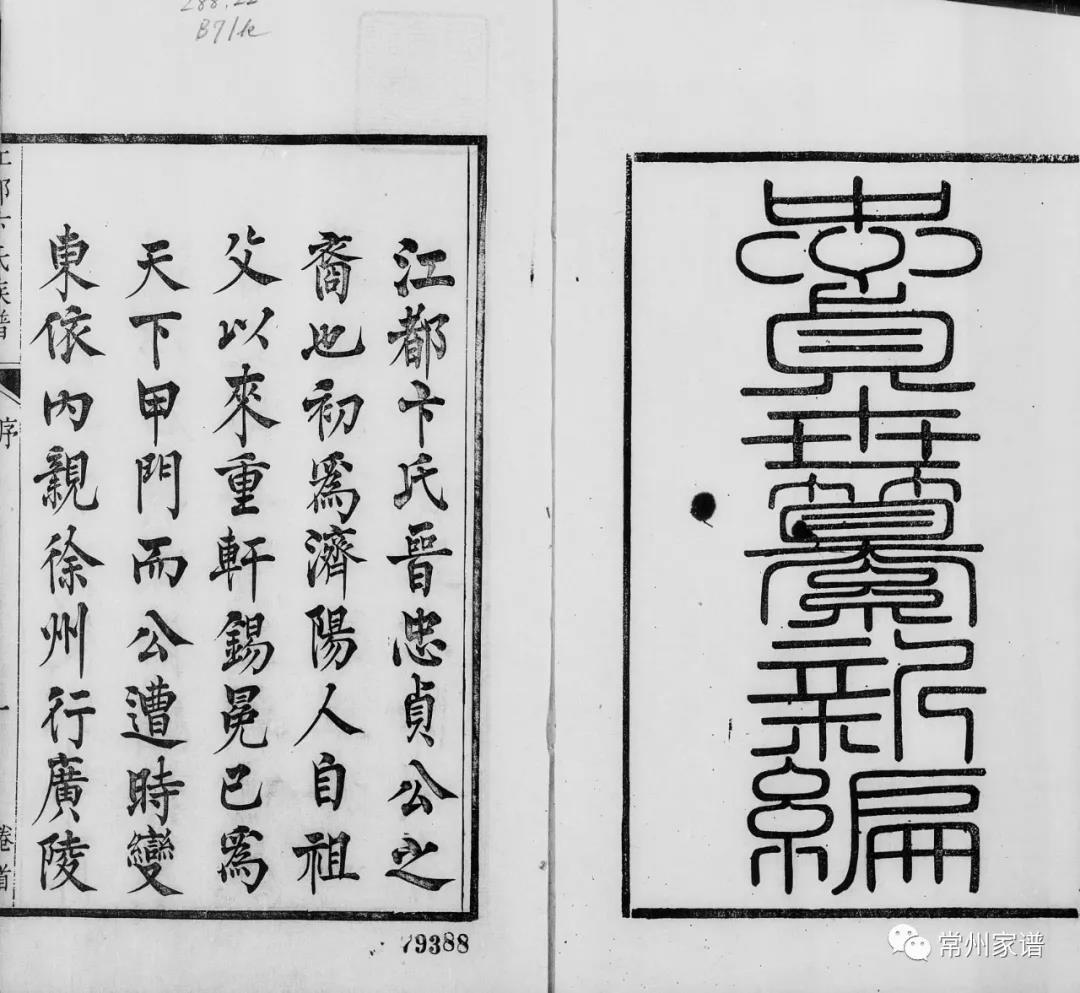 忠貞纂新編
江都卞氏晉忠貞公之
裔也初爲濟陽人自祖
父以來重軒錫冕已爲
天下甲門而公遭時變
東依內親徐州行廣陵
江都卞氏族譜
序
一
卷首
79388
常州家谱